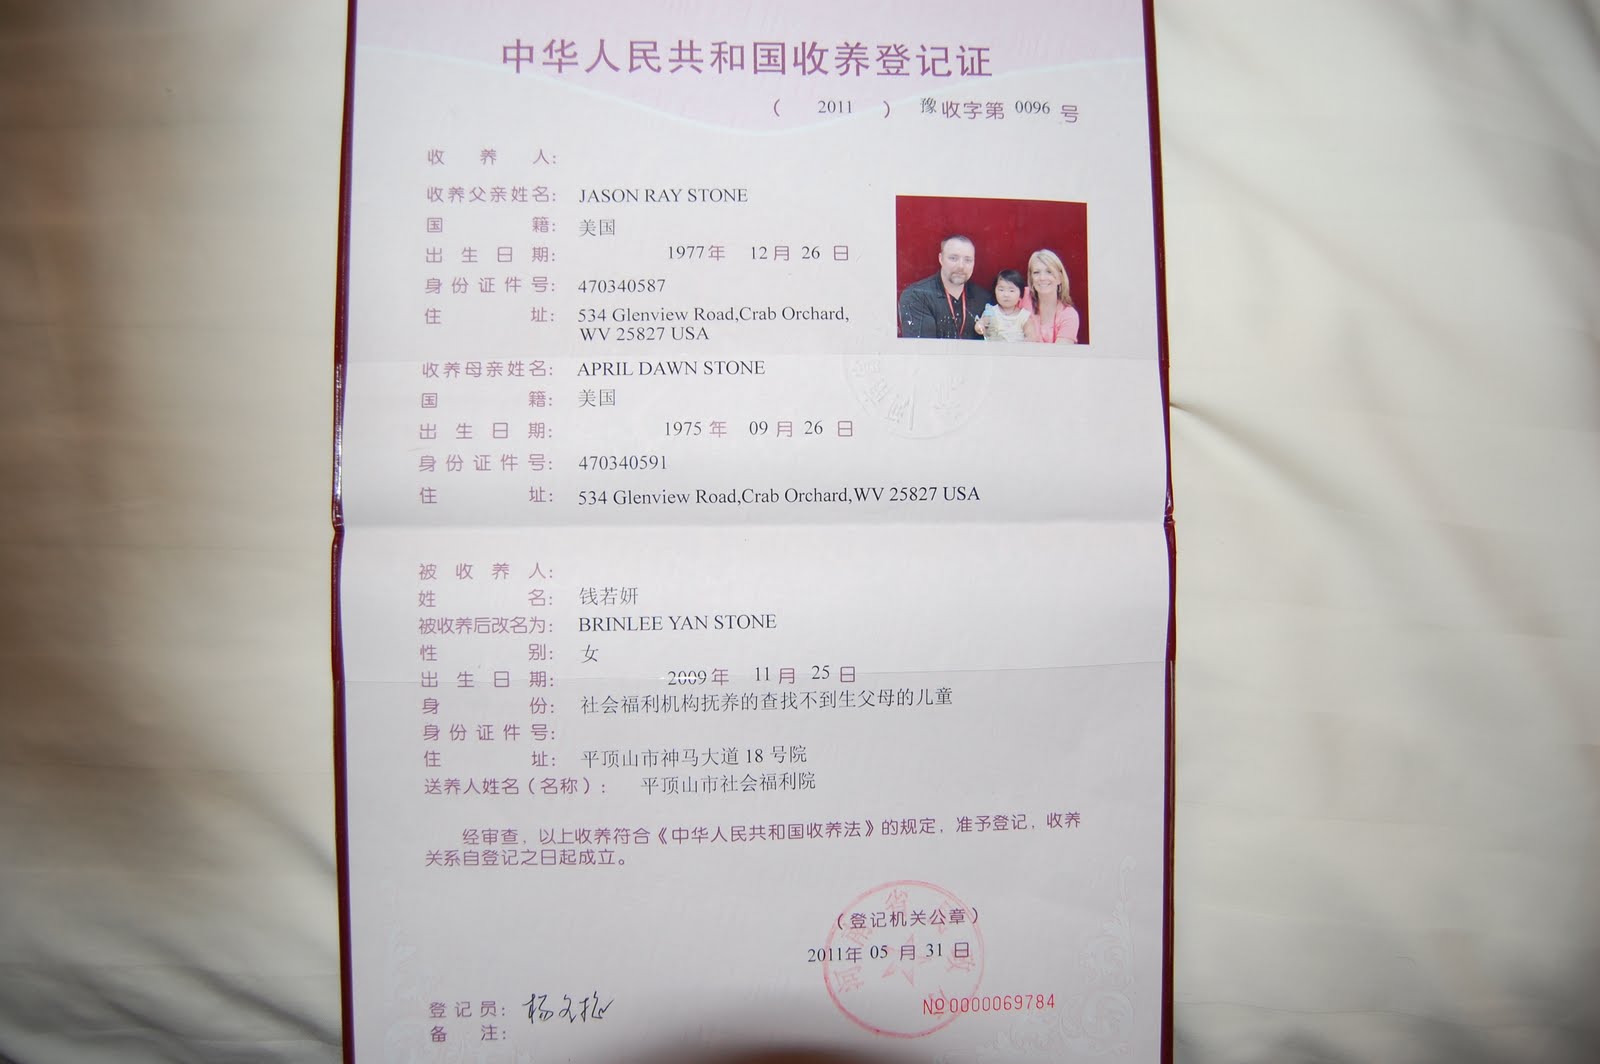 中华人民共和国收养登记证
( 2011 ) 豫收字第 0096 号
收养人:
收养父亲姓名: JASON RAY STONE
国籍: 美国
出生日期: 1977年 12月 26 日
身份证件号: 470340587
住址: 534 Glenview Road,Crab Orchard,
WV 25827 USA
收养母亲姓名: APRIL DAWN STONE
国籍: 美国
出生日期: 1975 年 09 月 26 日
身份证件号: 470340591
住址: 534 Glenview Road,Crab Orchard,WV 25827 USA
被收养人:
姓名: 钱若妍
被收养后改名为: BRINLEE YAN STONE
性别: 女
出生日期: 2009年 11 月 25 日
身份: 社会福利机构抚养的查找不到生父母的儿童
身份证件号:
住址: 平顶山市神马大道 18 号院
送养人姓名(名称): 平顶山市社会福利院
经审查，以上收养符合《中华人民共和国收养法》的规定，准予登记，收养
关系自登记之日起成立。
(登记机关公章)
2011年 05 月 31 日
№0000069784
登记员:
备注: